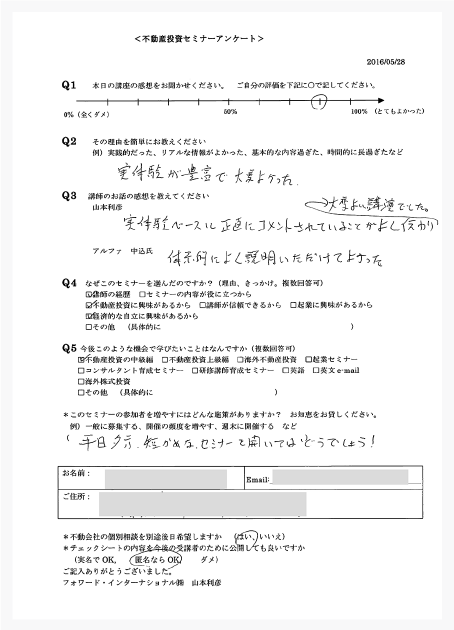 ＜不動産投資セミナーアンケート＞
2016/05/28
Q1 本日の講座の感想をお聞かせください。 ご自分の評価を下記に○で記してください。
0%（全くダメ） 50% 100%（とてもよかった）
Q2 その理由を簡単にお教えください
例）実践的だった、リアルな情報がよかった、基本的な内容過ぎた、時間的に長過ぎたなど
実体験が豊富で大変よかった.
Q3 講師のお話の感想を教えてください
山本利彦
大変よい講演でした。
実体験ベースに正直にコメントされていることがよく伝わり
アルファ 中込氏
体系的によく説明いただけてよかった
Q4 なぜこのセミナーを選んだのですか？（理由、きっかけ。複数回答可）
☑講師の経歴 □セミナーの内容が役に立つから
☑不動産投資に興味があるから □講師が信頼できるから □起業に興味があるから
☑経済的な自立に興味があるから
□その他 （具体的に ）
Q5 今後このような機会で学びたいことはなんですか（複数回答可）
☑不動産投資の中級編 □不動産投資上級編 □海外不動産投資 □起業セミナー
□コンサルタント育成セミナー □研修講師育成セミナー □英語 □英文e-mail
□海外株式投資
□その他 （具体的に ）
＊このセミナーの参加者を増やすにはどんな施策がありますか？ お知恵をお貸しください。
例）一般に募集する、開催の頻度を増やす、週末に開催する など
平日夕方、短かめなセミナーを開いてはどうでしょう！
お名前： Email:
ご住所：
＊不動会社の個別相談を別途後日希望しますか （はい、いいえ）
＊チェックシートの内容を今後の受講者のために公開しても良いですか
（実名でOK, 匿名ならOK, ダメ）
ご記入ありがとうございました。
フォワード・インターナショナル㈱ 山本利彦